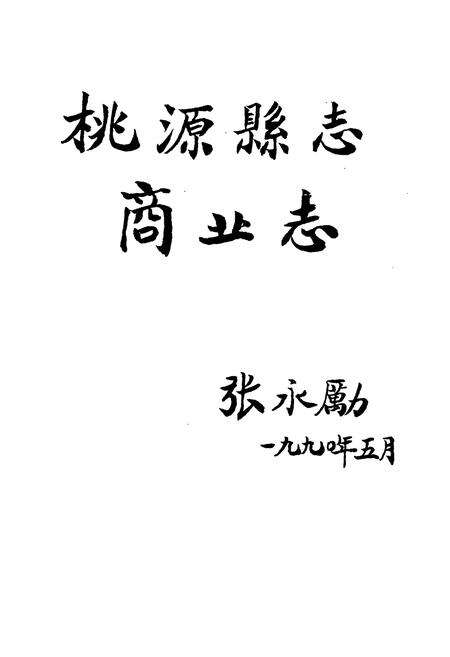 桃源縣志
商业志
张永勵
一九九〇年五月